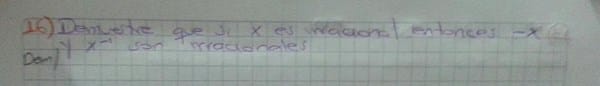 16) Demuestre que si x es irracional entonces -x
y x⁻¹ son irracionales
Dem/